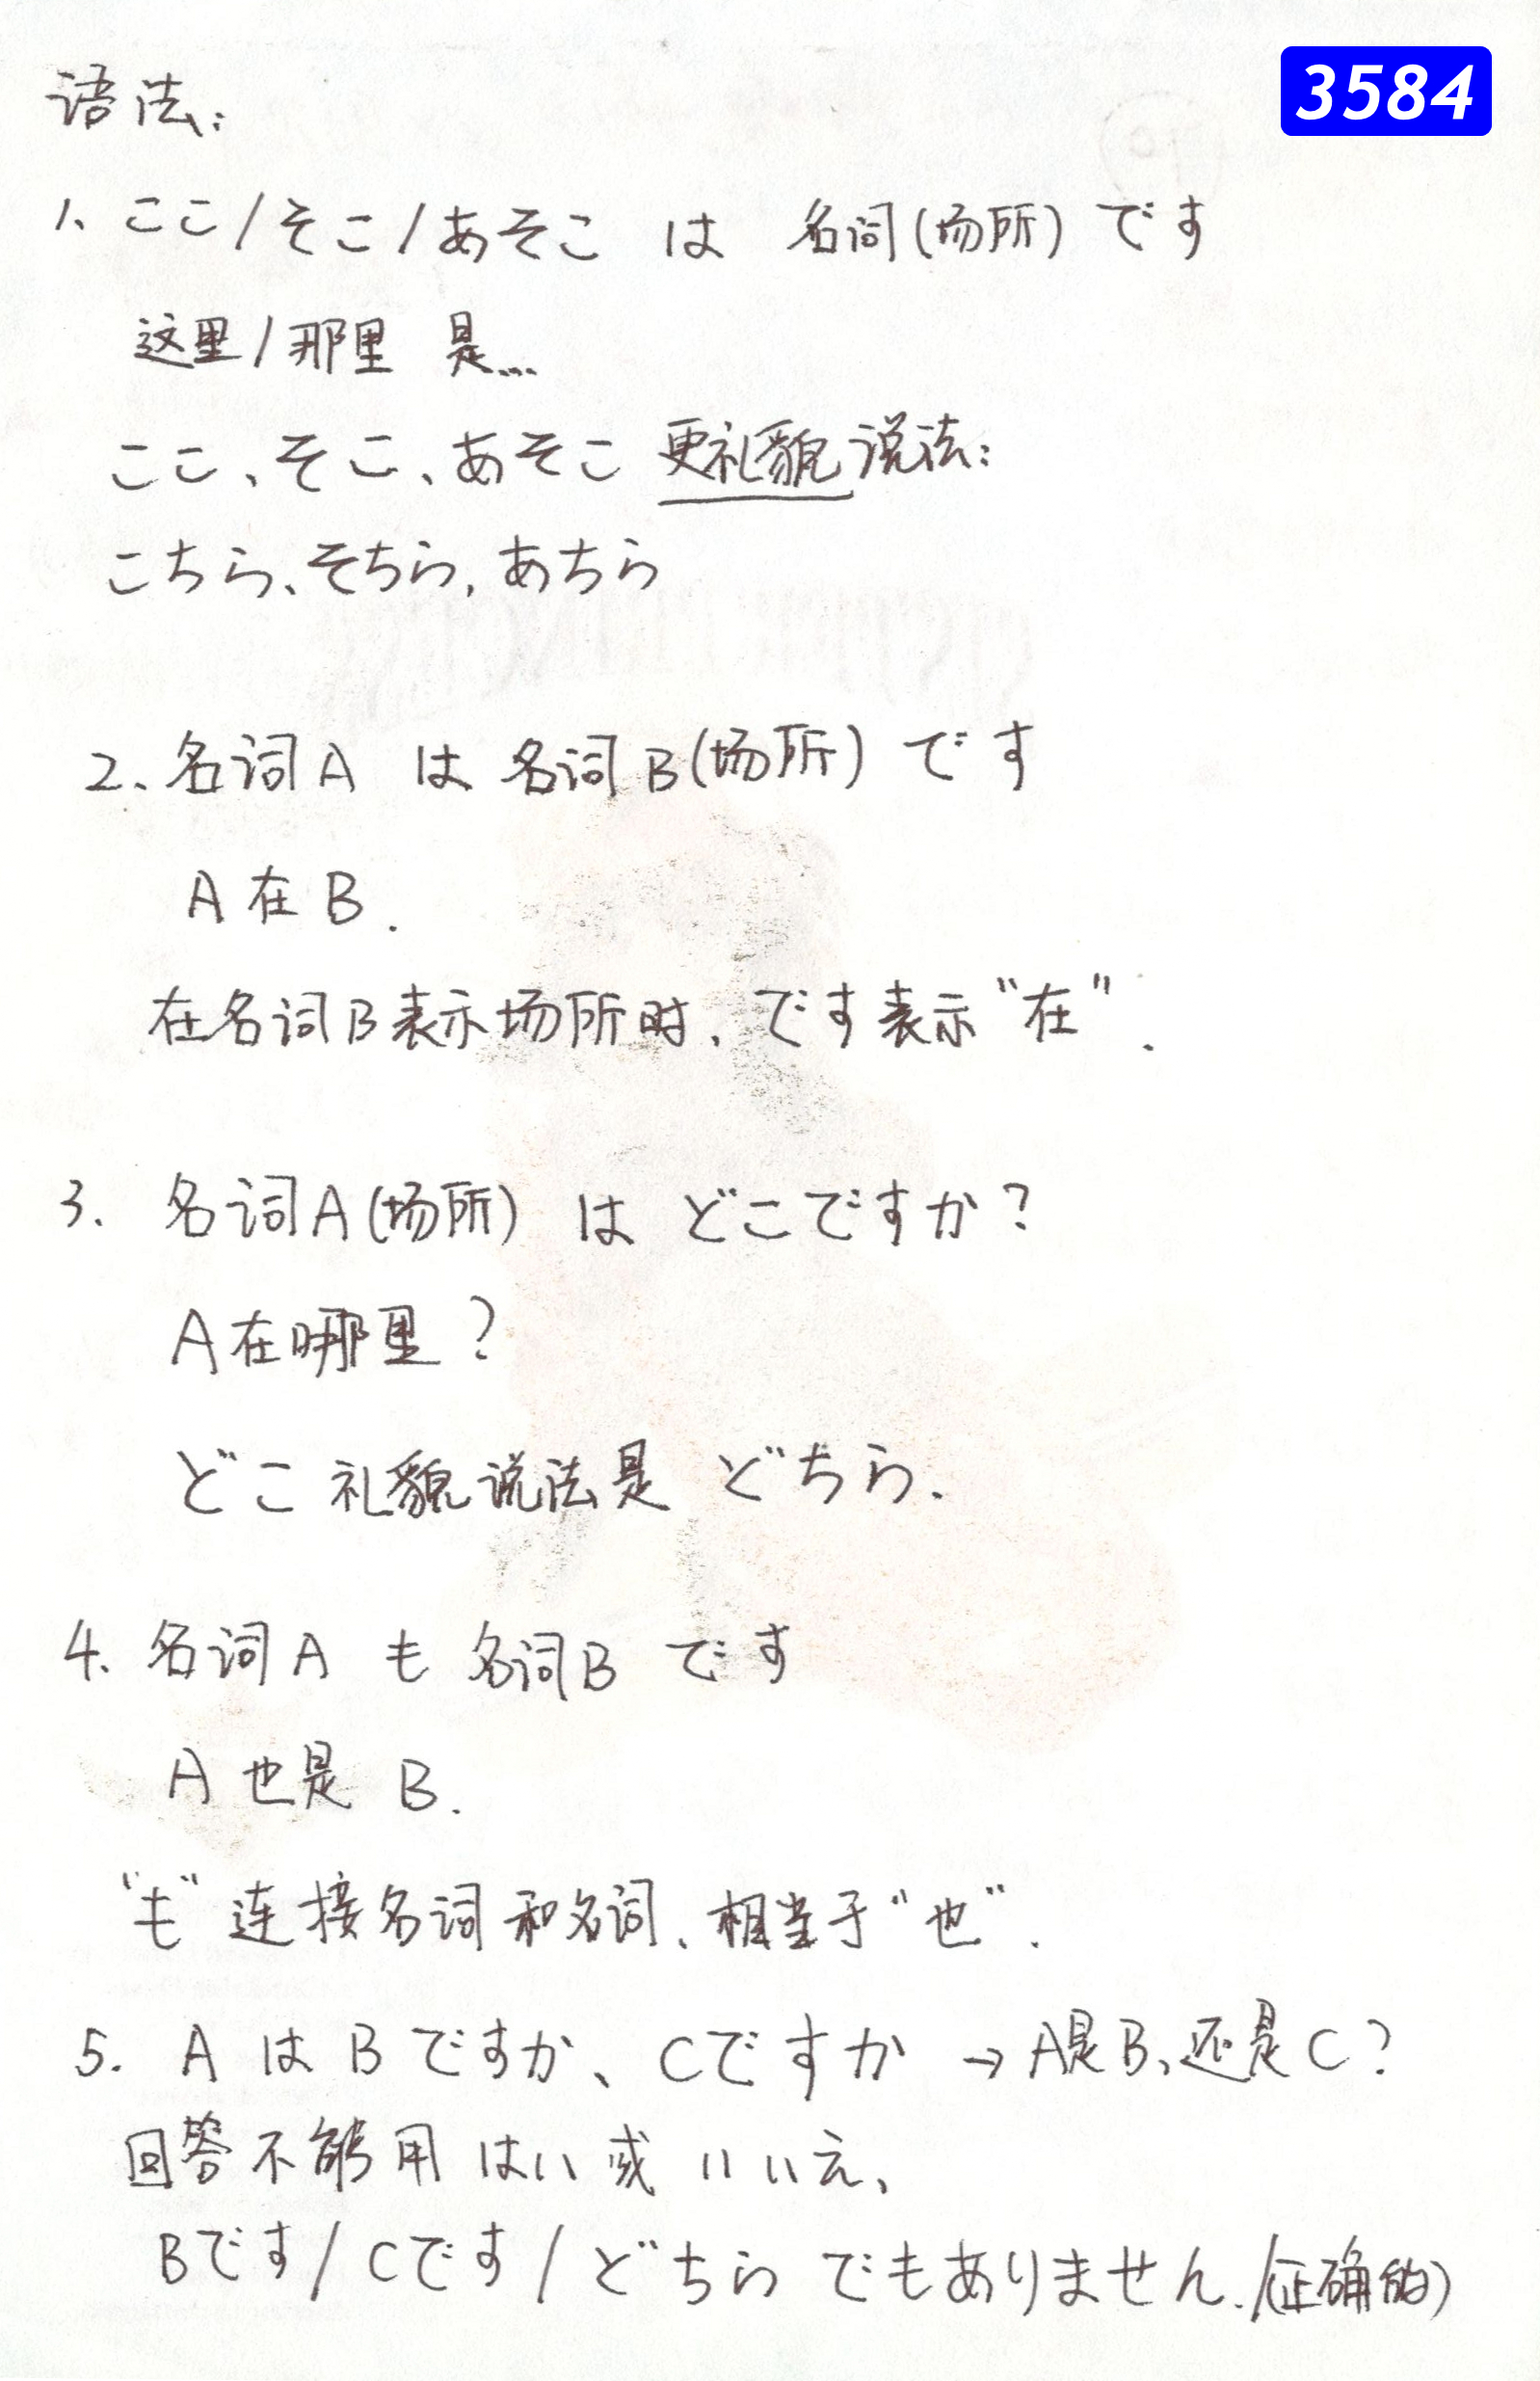 3584
语法:
1、ここ/そこ/あそこ は 名词(场所) です
这里/那里 是...
ここ、そこ、あそこ 更礼貌说法:
こちら、そちら, あちら
2、名词A は 名词B(场所) です
A在B.
在名词B表示场所时、です表示“在”.
3. 名词A(场所) は どこですか?
A在哪里?
どこ 礼貌说法是 どちら.
4、名词A も 名词B です
A也是 B.
“も”连接名词和名词、相当于“也”.
5. AはBですか、Cですか → A是B、还是C?
回答不能用 はい 或 いいえ、
Bです/Cです/どちらでもありません./(正确的)